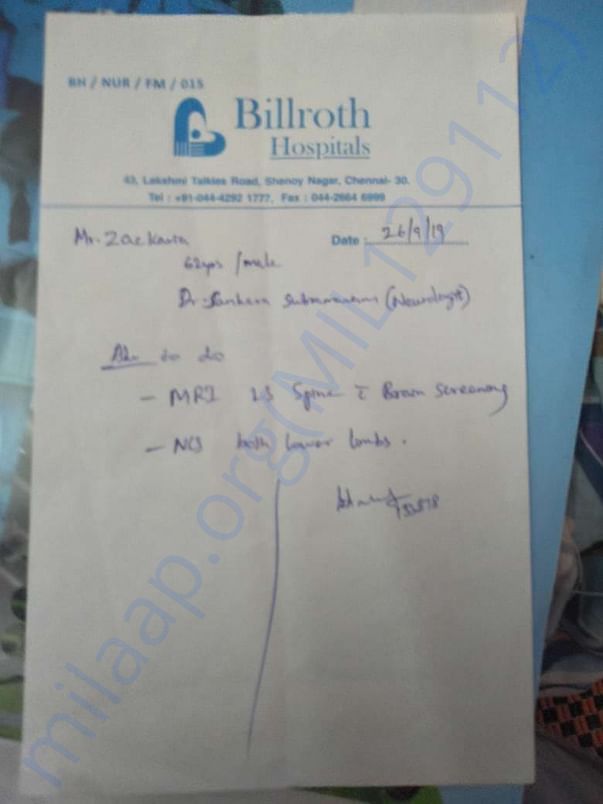 BH / NUR / FM / 015
Billroth
Hospitals
43, Lakshmi Talkies Road, Shenoy Nagar, Chennai- 30.
Tel : +91-044-4292 1777, Fax : 044-2664 6999
Mr. Zackaria
Date : 26/9/19
62yrs /male
Dr. Sankara Subramanian (Neurologist)
to do
- MRI LS Spine c̄ Brain Screening
- NCS both lower limbs.
milaap.org(MIL1291112)